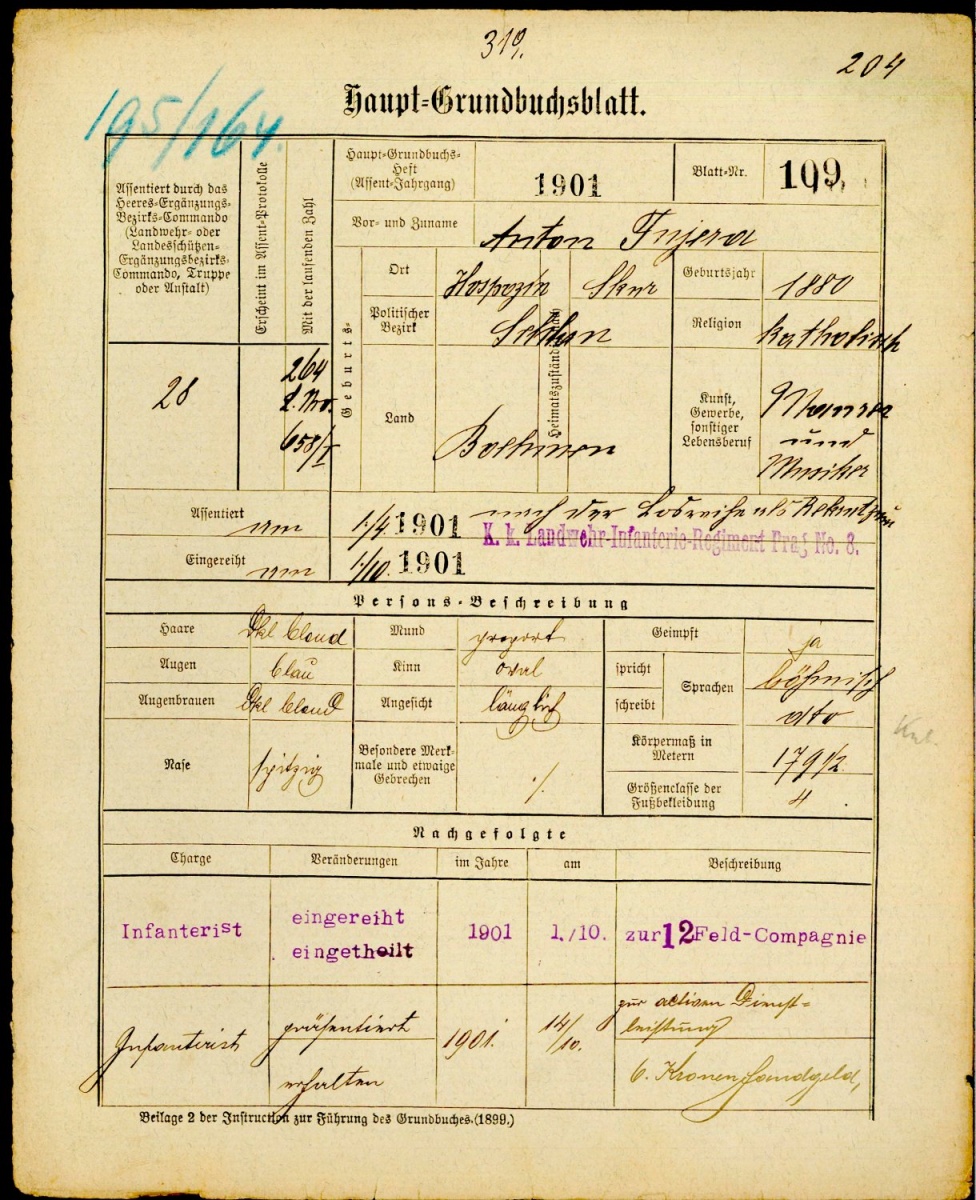 319.
204
195/164.
Haupt=Grundbuchsblatt.
Assentiert durch das
Heeres=Ergänzungs=
Bezirks=Commando
(Landwehr= oder
Landesschützen=
Ergänzungsbezirks=
Commando, Truppe
oder Anstalt)
Erscheint im Assent=Protokolle
Mit der laufenden Zahl
28
264
658/I
Haupt=Grundbuchs=
Heft
(Assent=Jahrgang)
1901
Blatt=Nr.
109
Vor= und Zuname
Anton
Geburts=
Heimatszuständig
Ort
Hospozin
Politischer
Bezirk
Schlan
Land
Boehmen
Geburtsjahr
1880
Religion
katholisch
Kunst,
Gewerbe,
sonstiger
Lebensberuf
Maurer
und
Musiker
Assentiert
am
1./4. 1901
nach der Losreihe als Rekrut zum
K. k. Landwehr-Infanterie-Regiment Prag No. 8.
Eingereiht
am
1./10. 1901
Persons=Beschreibung
Haare
Dkl blond
Mund
proport.
Geimpft
ja
Augen
blau
Kinn
oval
spricht
Sprachen
böhmisch
Augenbrauen
Dkl blond
Angesicht
länglich
schreibt
dto
Nase
spitzig
Besondere Merk=
male und etwaige
Gebrechen
./.
Körpermaß in
Metern
179 1/2
Größenclasse der
Fußbekleidung
4
Nachgefolgte
Charge
Veränderungen
im Jahre
am
Beschreibung
Infanterist
eingereiht
eingetheilt
1901
1./10.
zur 12 Feld-Compagnie
Infanterist
präsentiert
1901.
14/10.
zur activen Dienst=
leistung
erhalten
6. Kronen Handgeld,
Beilage 2 der Instruction zur Führung des Grundbuches.(1899.)